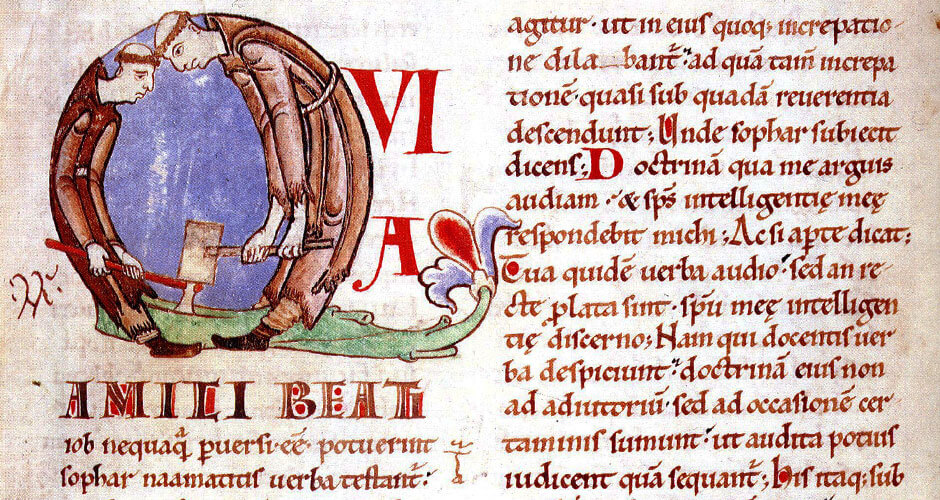 QVI
A
AMICI BEATI
iob nequaq̄ ꝑuersi·eē· potuerint
sophar naamatitis uerba testant᷑·
agitur· ut in eius quoq; increpatio
ne dilabant᷑· ad quā tam̄ increpa
tionē· quasi sub quadā reuerentia
descendunt; Unde sophar subiecit
dicens; Doctrinā qua me arguis
audiam· & sp̄s intelligentię meę
respondebit michi; Ac si aꝑte dicat;
Tua quidē uerba audio· sed an re
cte ꝓlata sint· sp̄u meę intelligen
tię discerno; Nam qui docentis uer
ba despiciunt· doctrinā eius non
ad adiutoriū· sed ad occasionē cer
taminis sumunt· ut audita potius
iudicent quā sequant᷑; His itaq; sub